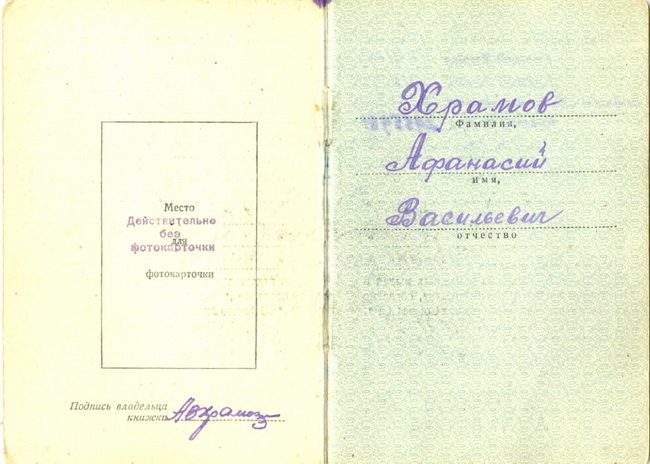 Место
Действительно
без
для
фотокарточки
фотокарточки
Подпись владельца
книжки
АВХрамов
Храмов
Фамилия,
Афанасий
имя,
Васильевич
отчество